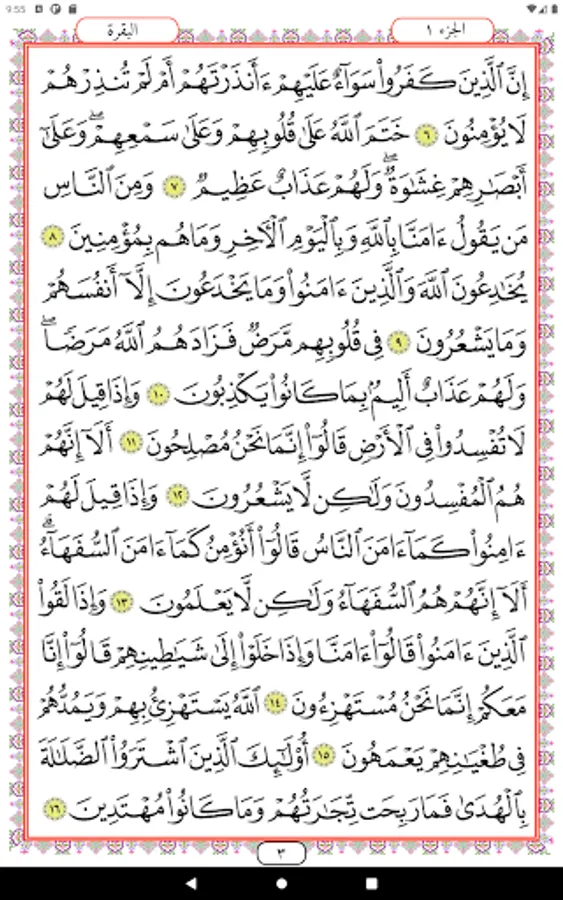 9:55
البقرة
الجزء ١
إِنَّ ٱلَّذِينَ كَفَرُواْ سَوَآءٌ عَلَيْهِمْ ءَأَنذَرْتَهُمْ أَمْ لَمْ تُنذِرْهُمْ
لَا يُؤْمِنُونَ ٦ خَتَمَ ٱللَّهُ عَلَىٰ قُلُوبِهِمْ وَعَلَىٰ سَمْعِهِمْۖ وَعَلَىٰٓ
أَبْصَٰرِهِمْ غِشَٰوَةٌۖ وَلَهُمْ عَذَابٌ عَظِيمٌ ٧ وَمِنَ ٱلنَّاسِ
مَن يَقُولُ ءَامَنَّا بِٱللَّهِ وَبِٱلْيَوْمِ ٱلْأٓخِرِ وَمَا هُم بِمُؤْمِنِينَ ٨
يُخَٰدِعُونَ ٱللَّهَ وَٱلَّذِينَ ءَامَنُواْ وَمَا يَخْدَعُونَ إِلَّآ أَنفُسَهُمْ
وَمَا يَشْعُرُونَ ٩ فِى قُلُوبِهِم مَّرَضٌ فَزَادَهُمُ ٱللَّهُ مَرَضًاۖ
وَلَهُمْ عَذَابٌ أَلِيمٌۢ بِمَا كَانُواْ يَكْذِبُونَ ١٠ وَإِذَا قِيلَ لَهُمْ
لَا تُفْسِدُواْ فِى ٱلْأَرْضِ قَالُوٓاْ إِنَّمَا نَحْنُ مُصْلِحُونَ ١١ أَلَآ إِنَّهُمْ
هُمُ ٱلْمُفْسِدُونَ وَلَٰكِن لَّا يَشْعُرُونَ ١٢ وَإِذَا قِيلَ لَهُمْ
ءَامِنُواْ كَمَآ ءَامَنَ ٱلنَّاسُ قَالُوٓاْ أَنُؤْمِنُ كَمَآ ءَامَنَ ٱلسُّفَهَآءُۗ
أَلَآ إِنَّهُمْ هُمُ ٱلسُّفَهَآءُ وَلَٰكِن لَّا يَعْلَمُونَ ١٣ وَإِذَا لَقُواْ
ٱلَّذِينَ ءَامَنُواْ قَالُوٓاْ ءَامَنَّا وَإِذَا خَلَوْاْ إِلَىٰ شَيَٰطِينِهِمْ قَالُوٓاْ إِنَّا
مَعَكُمْ إِنَّمَا نَحْنُ مُسْتَهْزِءُونَ ١٤ ٱللَّهُ يَسْتَهْزِئُ بِهِمْ وَيَمُدُّهُمْ
فِى طُغْيَٰنِهِمْ يَعْمَهُونَ ١٥ أُوْلَٰٓئِكَ ٱلَّذِينَ ٱشْتَرَوُاْ ٱلضَّلَٰلَةَ
بِٱلْهُدَىٰ فَمَا رَبِحَت تِّجَٰرَتُهُمْ وَمَا كَانُواْ مُهْتَدِينَ ١٦
٣